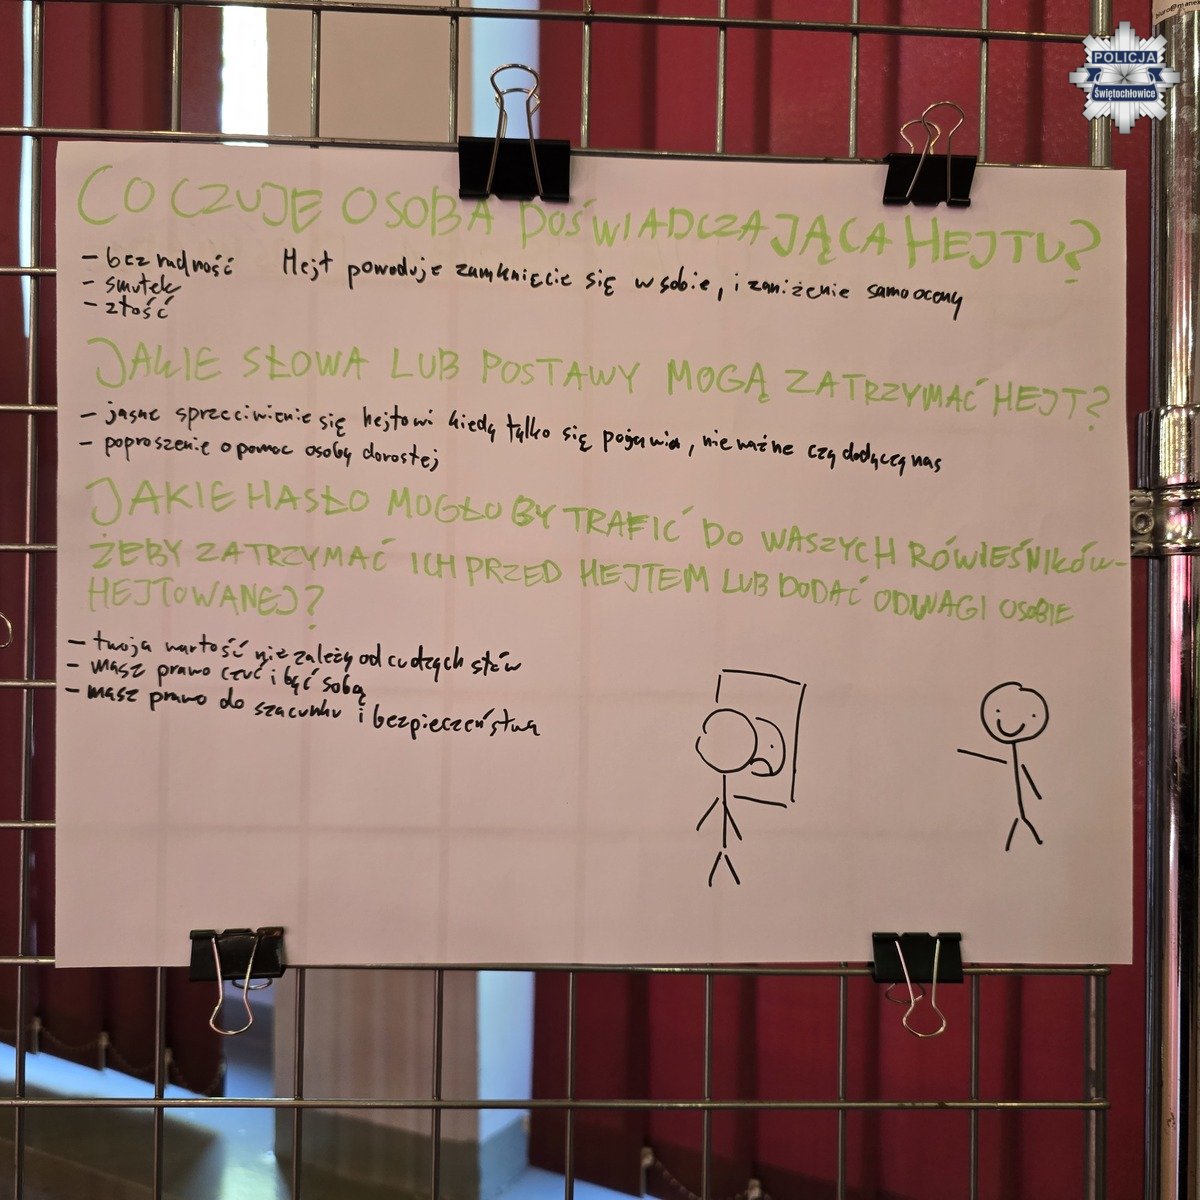 POLICJA
Świętochłowice
CO CZUJE OSOBA DOŚWIADCZAJĄCA HEJTU?
- bezradność Hejt powoduje zamknięcie się w sobie, i zaniżenie samooceny
- smutek
- złość
JAKIE SŁOWA LUB POSTAWY MOGĄ ZATRZYMAĆ HEJT?
- jasne sprzeciwienie się hejtowi kiedy tylko się pojawia, nie ważne czy dotyczy nas
- poproszenie o pomoc osoby dorosłej
JAKIE HASŁO MOGŁO BY TRAFIĆ DO WASZYCH RÓWIEŚNIKÓW
ŻEBY ZATRZYMAĆ ICH PRZED HEJTEM LUB DODAĆ ODWAGI OSOBIE
HEJTOWANEJ?
- twoja wartość nie zależy od cudzych słów
- masz prawo czuć i być sobą
- masz prawo do szacunku i bezpieczeństwa